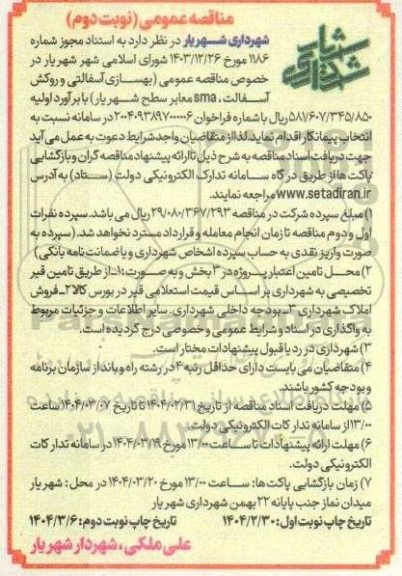 مناقصه عمومی (نوبت دوم)
شهرداری شهریار
شهرداری شهریار در نظر دارد به استناد مجوز شماره
۱۱۸۶ مورخ ۱۴۰۳/۱۲/۲۶ شورای اسلامی شهر شهریار در
خصوص مناقصه عمومی (بهسازی آسفالتی و روکش
آسفالت ، sma معابر سطح شهریار) با برآورد اولیه
۵۸۱/۶۰۷/۳۴۵/۸۵۰ ریال با شماره فراخوان ۲۰۰۴۰۹۳۸۹۷۰۰۰۰۰۶ در سامانه نسبت به
انتخاب پیمانکار اقدام نماید. لذا از متقاضیان واجد شرایط دعوت به عمل می آید
جهت دریافت اسناد مناقصه به شرح ذیل تا ارائه پیشنهاد مناقصه گران و بازگشایی
پاکت ها از طریق در گاه سامانه تدارک الکترونیکی دولت (ستاد) به آدرس
www.setadiran.ir مراجعه نمایند.
۱) مبلغ سپرده شرکت در مناقصه ۲۹/۰۸۰/۳۶۷/۲۹۳ ریال می باشد. سپرده نفرات
اول و دوم مناقصه تا زمان انجام معامله و قرارداد مسترد نخواهد شد. (سپرده به
صورت واریز نقدی به حساب سپرده اشخاص شهرداری و یا ضمانت نامه بانکی)
۲) محل تامین اعتبار پروژه در ۳ بخش و به صورت: ۱ـ از طریق تامین قیر
تخصیصی به شهرداری بر اساس قیمت استعلامی قیر در بورس کالا ۲ـ فروش
املاک شهرداری ۳ـ بودجه داخلی شهرداری. سایر اطلاعات و جزئیات مربوط
به واگذاری در اسناد و شرایط عمومی و خصوصی درج گردیده است.
۳) شهرداری در رد یا قبول پیشنهادات مختار است.
۴) متقاضیان می بایست دارای حداقل رتبه ۴ در رشته راه و باند از سازمان برنامه
و بودجه کشور باشند.
۵) مهلت دریافت اسناد مناقصه از تاریخ ۱۴۰۴/۰۲/۳۱ تا تاریخ ۱۴۰۴/۰۳/۰۷ ساعت
۱۳/۰۰ از سامانه تدارکات الکترونیکی دولت.
۶) مهلت ارائه پیشنهادات تا ساعت ۱۳/۰۰ مورخ ۱۴۰۴/۰۳/۱۹ در سامانه تدارکات
الکترونیکی دولت.
۷) زمان بازگشایی پاکت ها: ساعت ۱۳/۰۰ مورخ ۱۴۰۴/۰۳/۲۰ در محل : شهریار
میدان نماز جنب پایانه ۲۲ بهمن شهرداری شهریار
تاریخ چاپ نوبت اول: ۱۴۰۴/۲/۳۰ تاریخ چاپ نوبت دوم: ۱۴۰۴/۳/۶
علی ملکی، شهردار شهریار